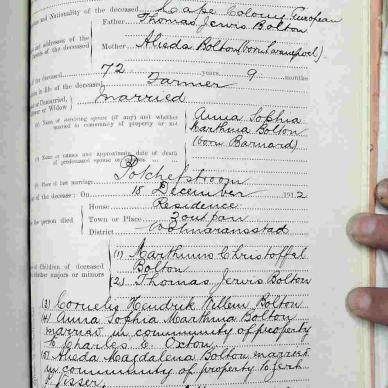 and Nationality of the deceased Cape Colony European
Father Thomas Jervis Bolton
and addresses of the
of the deceased
Mother Aleda Bolton (born
of the deceased 72 years 9 months
in life of the deceased Farmer
or Unmarried,
or Widow) Married
(a) Name of surviving spouse (if any) and whether
married in community of property or not
Anna Sophia
Marthina Bolton
(born Barnard)
(b) Name or names and approximate date of death
of predeceased spouse or spouses
(c) Place of last marriage Potchefstroom
of the deceased: On 18 December 1912
House Residence
the person died Town or Place Zoutpan
District Wolmaransstad
Children of deceased
whether majors or minors
(1) Marthinus Christoffel
Bolton
(2) Thomas Jervis Bolton
(3) Cornelis Hendrik Willem Bolton
(4) Anna Sophia Marthina Bolton
married in community of property
to Charles E. Oxton
(5) Aleda Magdalena Bolton married
in community of property to
Visser